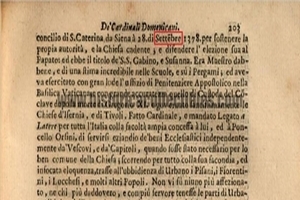 De' Cardinali Domenicani. 205
concilio di S. Caterina da Siena à 28. di Settẽbre 1378. per sostenere la
propria autorità, e la Chiesa cadente, e difendere l'elezione sua al
Papato: ed ebbe il titolo de' S S. Gabino, e Susanna. Era Maestro dabbe-
ne, e di una stima incredibile nelle Scuole, e su i Pergami, ed aveva
esercitato con gran
Basilica Vaticana
clave
Chiese d'Isernia, e di Tivoli, Fatto Cardinale, e mandato Legato à
Latere per tutta l'Italia colla scorta ampla concessa à lui, ed à Pon-
cello Orsini, di servirsi eziandio de' beni Ecclesiastici independente-
mente da' Vescovi, e da' Capitoli, quando fosse stato necessario per
ben comune della Chiesa; scorrendo per tutto colla sua facondia, ed
infocata eloquenza, trasse all'ubbidienza di Urbano i Pisani, Fioren-
ni, i Lucchesi, e molti altri Popoli. Non vi fù niuno più affeziona-
to, ne chi più dovere, e con più tenesse le parti di Urba-